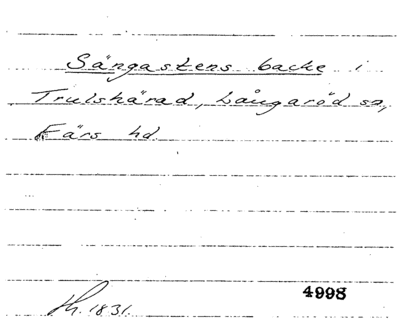 Sängastens backe i
Trulshärad, Långaröd sn,
Färs hd.
4998
th. 1831.